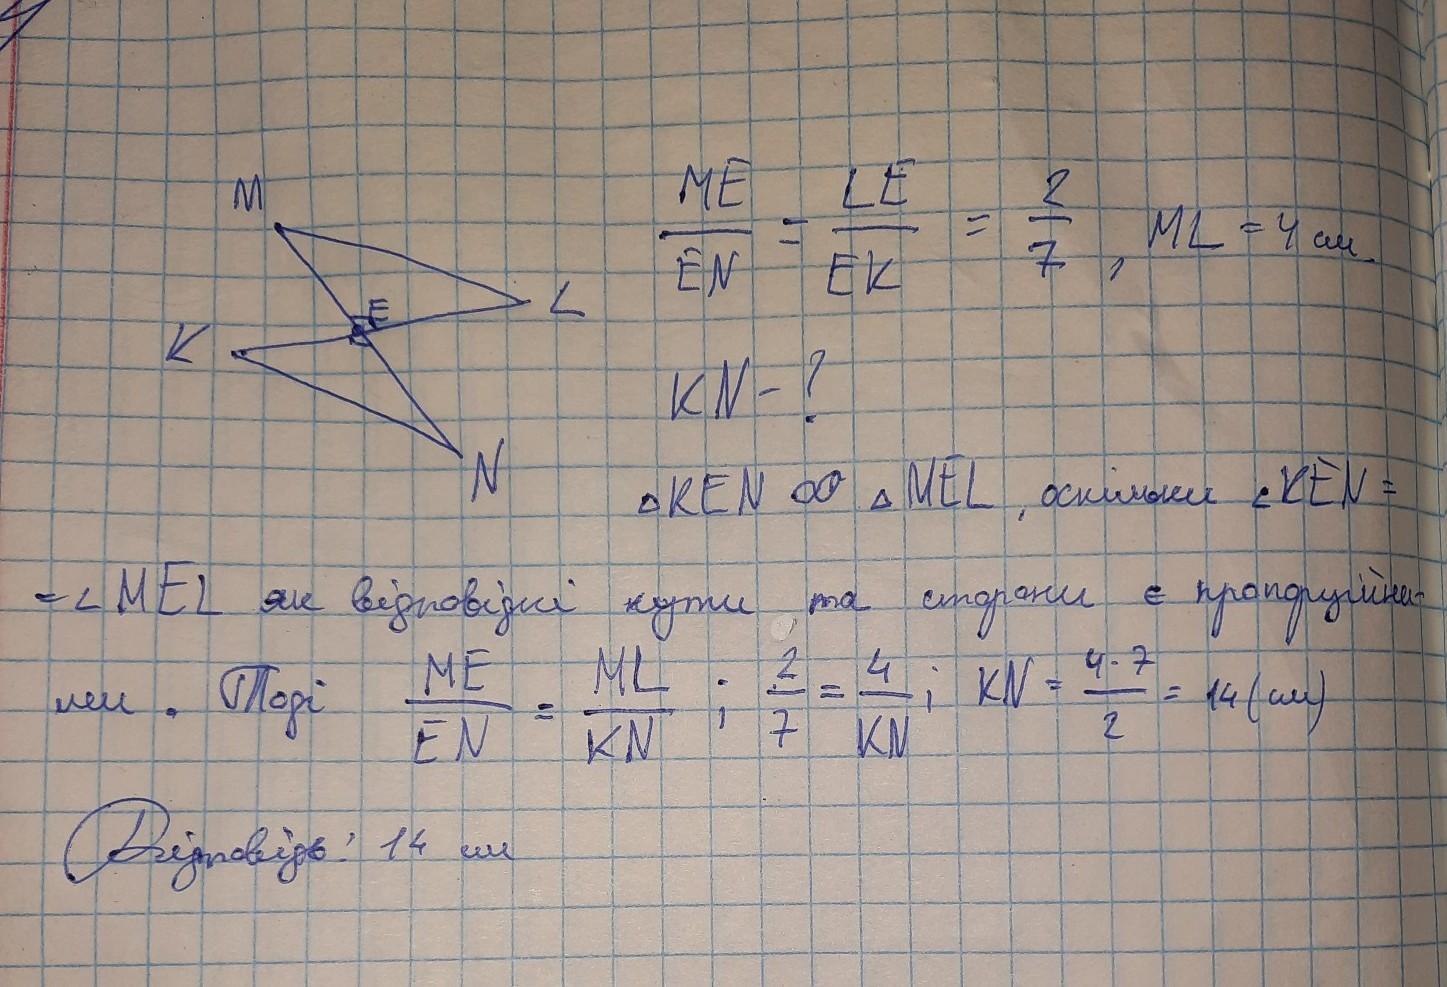 M
E
L
K
N
ME/EN = LE/EK = 2/7, ML = 4 см
KN - ?
△KEN ∞ △MEL, оскільки ∠KEN =
= ∠MEL як відповідні кути та сторони є пропорційни-
ми. Тоді ME/EN = ML/KN; 2/7 = 4/KN; KN = 4·7/2 = 14 (см)
Відповідь: 14 см